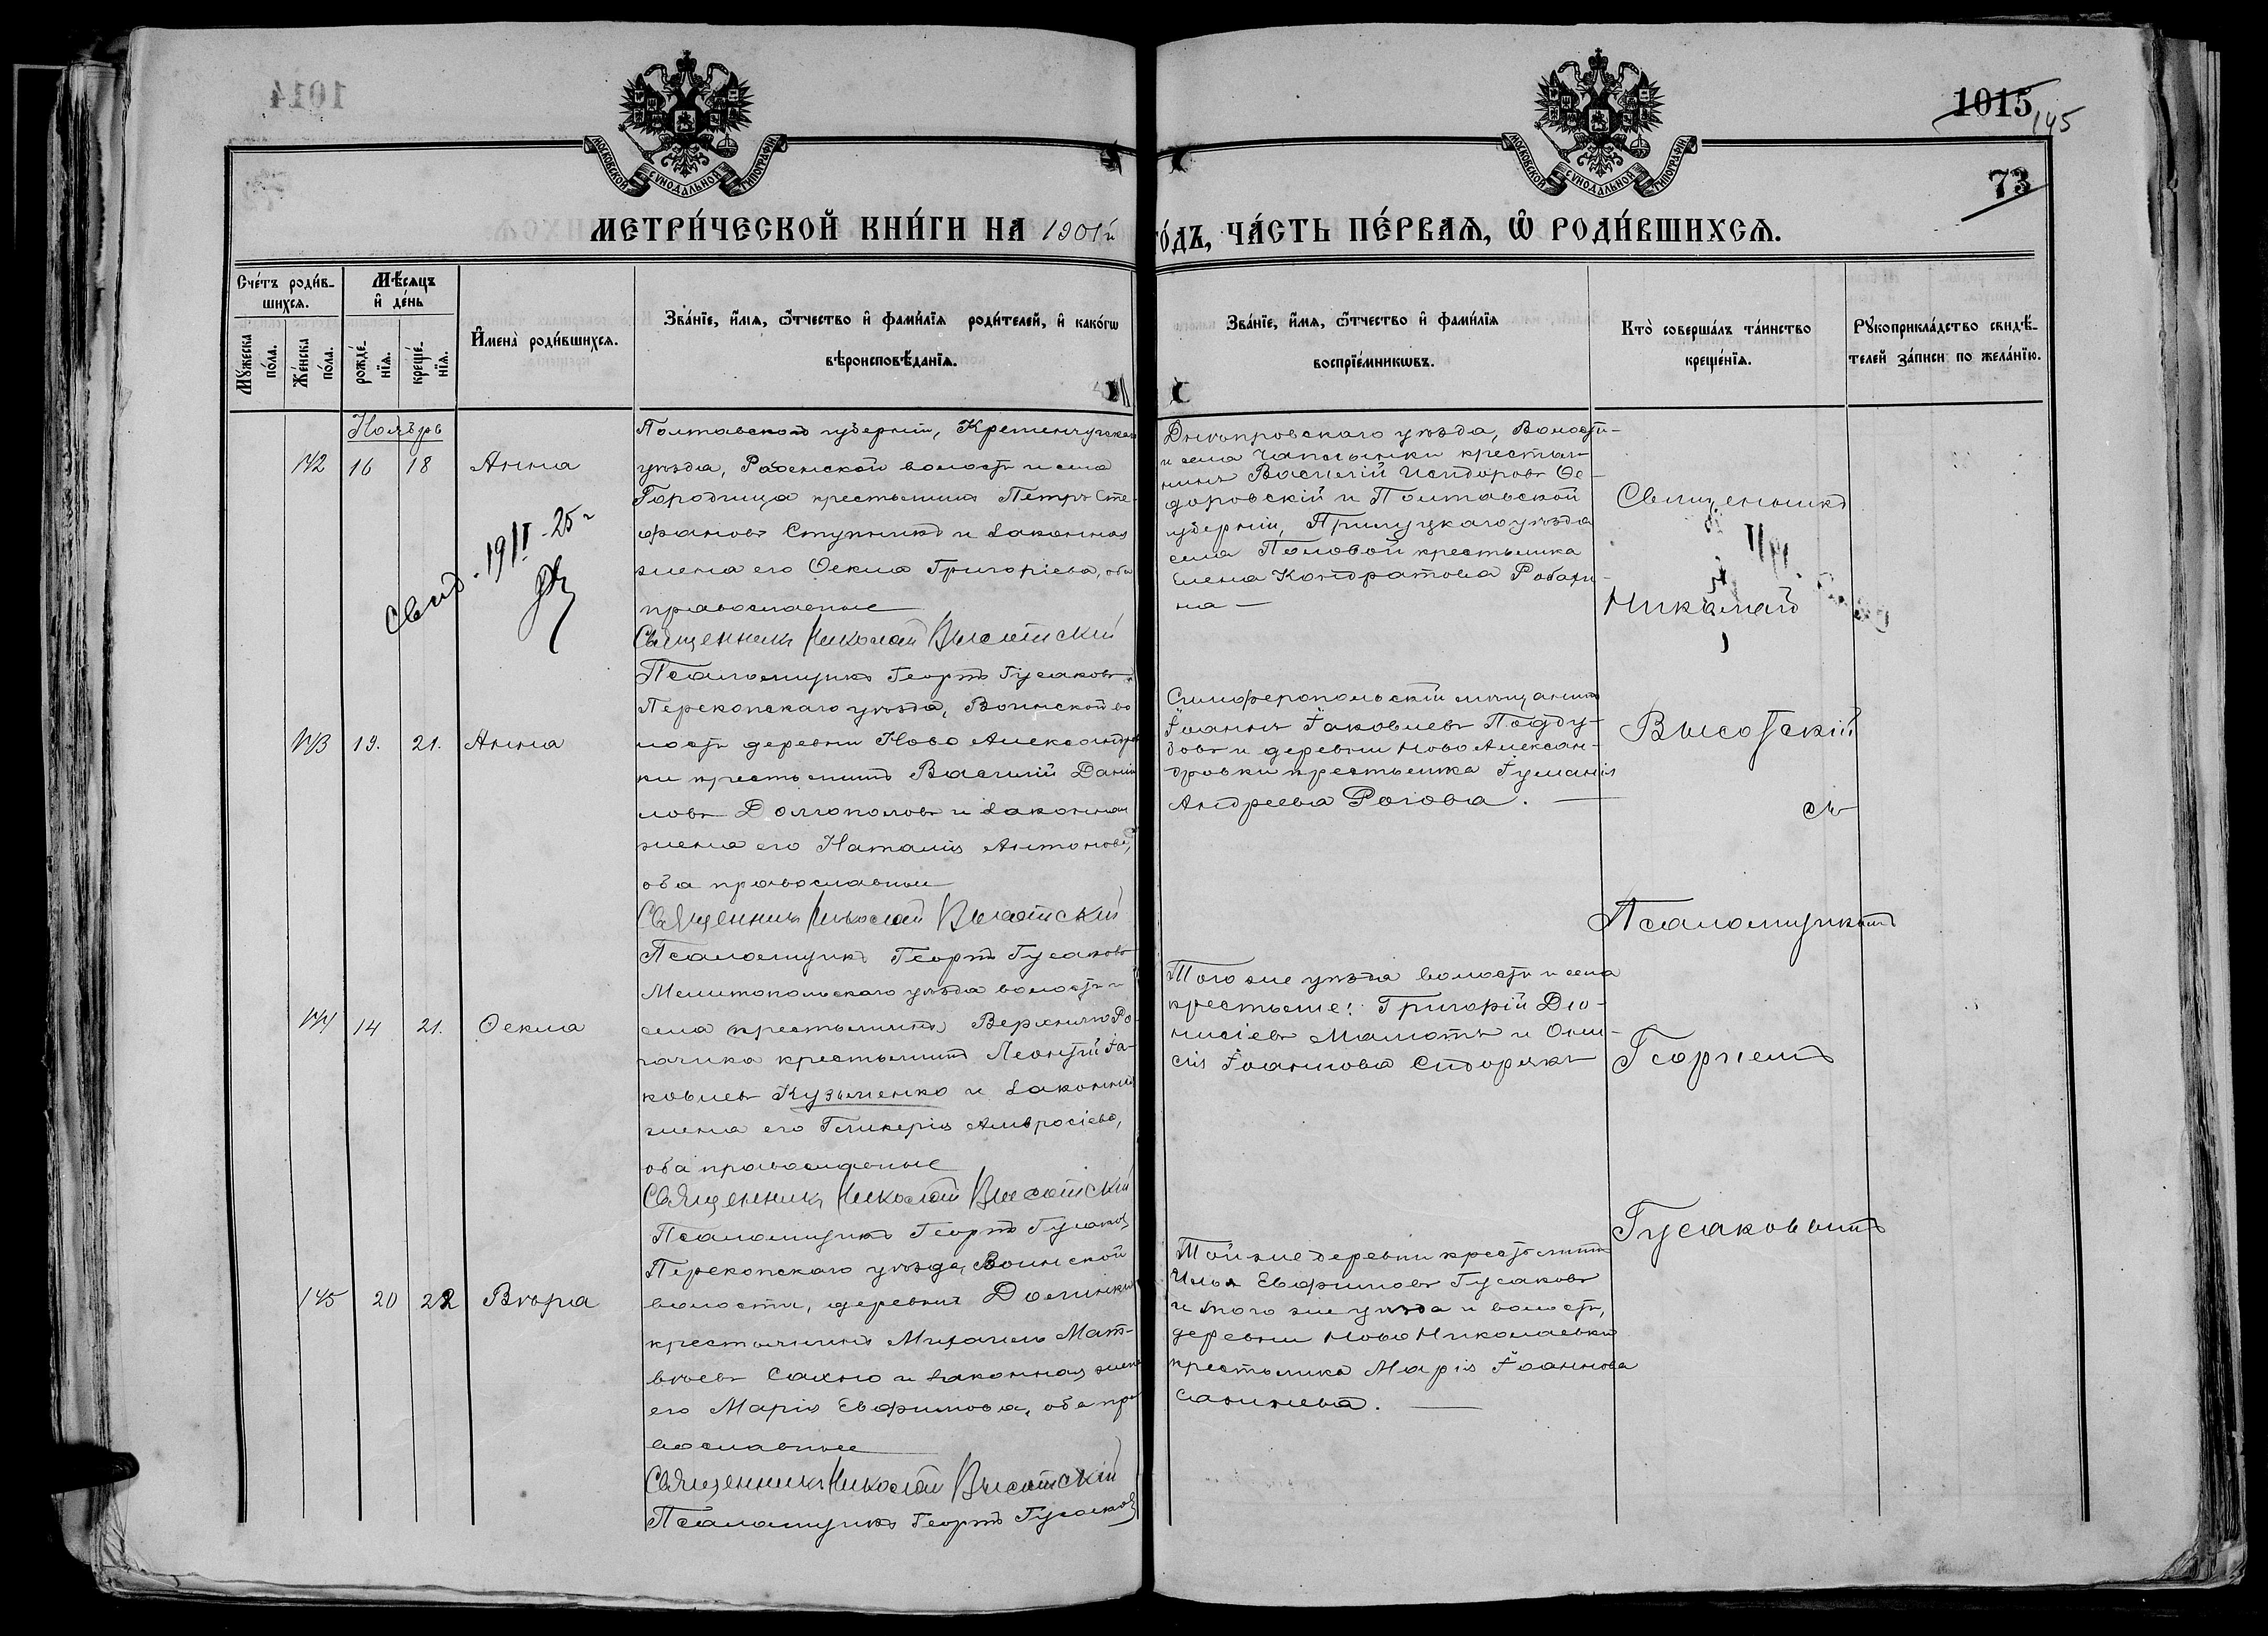 1014
1015
145
73
МОСКОВСКОЙ СѴНОДАЛЬНОЙ ТИПОГРАФІИ
МОСКОВСКОЙ СѴНОДАЛЬНОЙ ТИПОГРАФІИ
МЕТРИ́ЧЕСКОЙ КНИ́ГИ НА 1901й
ГО́ДЪ, ЧА́СТЬ ПЕ́РВАѦ, Ѡ҆ РОДИ́ВШИХСѦ.
Сче́тъ роди́в-
шихсѧ.
Мꙋ́жеска по́ла.
Же́нска по́ла.
Мѣ́сѧцъ
и҆ де́нь
рожде́-нїѧ.
креще́-нїѧ.
И҆мена̀ роди́вшихсѧ.
Зва́нїе, и҆́мѧ, ѻ҆́тчество и҆ фами́лїѧ роди́телей, и҆ како́гѡ
вѣроисповѣ́данїѧ.
Зва́нїе, и҆́мѧ, ѻ҆́тчество и҆ фами́лїѧ
воспрїе́мникѡвъ.
Кто̀ соверша́лъ та́инство
креще́нїѧ.
Рꙋкоприкла́дство свидѣ́-
телей за́писи по жела́нїю.
Ноябрь
142 16 18 Анна
Полтавской губерніи, Кременчугскаго
уѣзда, волости и села
Городища крестьянинъ Петръ Сте-
фановъ Ступникъ и законная
жена его Ѳекла Григоріева, оба
православные
Священникъ Николай Высотскій
Псаломщикъ Георгій Гусаковъ
Свид. 19 II 25 г
Днѣпровскаго уѣзда, Волости
и села Чаплынки крестья-
нинъ Василій Исидоровъ Ѳе-
доровскій и Полтавской
губерніи, Прилуцкаго уѣзда
села Половой крестьянка
Елена Кондратова
на —
143 19. 21. Анна
Перекопскаго уѣзда, Воинской во
лости деревни Ново Александров
ки крестьянинъ Василій Данiи
ловъ Долгополовъ и законная
жена его Наталія Антонова,
оба православные
Священникъ Николай Высотскій
Псаломщикъ Георгій Гусаковъ
Симферопольскій мѣщанинъ
Іоаннъ Іаковлевъ Подду-
бовъ и деревни Ново Алексан-
дровки крестьянка Іуліанія
Андреева Рогова. —
144 14 21. Ѳекла
Мелитопольскаго уѣзда волости и
села крестьянинъ Верхняго Ро
гачика крестьянинъ Леонтій Іа-
ковлевъ Кузьменко и законная
жена его Гликерія Амвросіева,
оба православные
Священникъ Николай Высотскій
Псаломщикъ Георгій Гусаковъ
Того же уѣзда волости и села
крестьяне: Григорій Діо-
нисіевъ Маматъ и Они-
сія Іоаннова Сидорякъ
145 20 22 Вѣра
Перекопскаго уѣзда, Воинской
волости, деревни Долинки
крестьянинъ Михаилъ Мат-
вѣевъ Сахно и законная жена
его Марія Евфимова, оба пра
вославные
Священникъ Николай Высотскій
Псаломщикъ Георгій Гусаковъ
Той же деревни крестьянинъ
Илья Евфимовъ Гусаковъ
и того же уѣзда и волости,
деревни Ново Николаевки
крестьянка Марія Іоаннова
Санжева. —
Священникъ
Николай
Высотскій
съ
Псаломщикомъ
Георгіемъ
Гусаковымъ